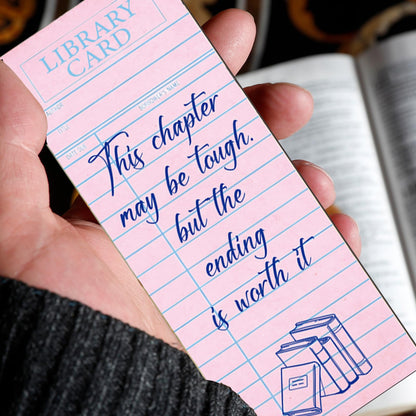 LIBRARY
CARD
BORROWER'S NAME
This chapter
may be tough.
but the
ending
is worth it